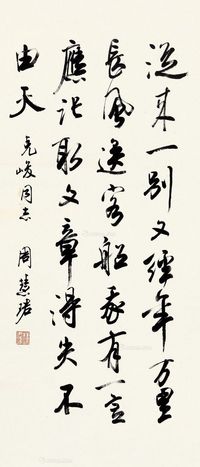 從来一别又經年万里
長風送客船我有一言
應記取文章得失不
由天
克峻同志 周慧珺